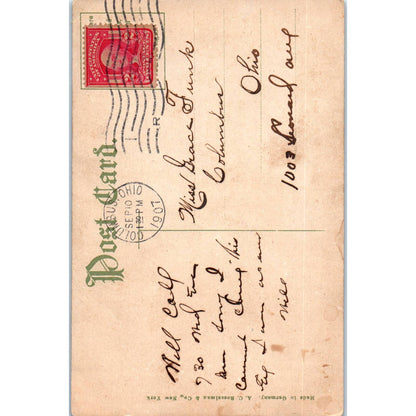 Post Card.
COLUMBUS, OHIO
SEP 10
1 30 PM
1907
R
Miss Grace Funk
Columbus
Ohio
1003 Leonard ave
Will Call
730 Wed Eve
am sorry I
Cannot Come this
Eve I am as ever
Will
Made in Germany. A. C. Bosselman & Co., New York